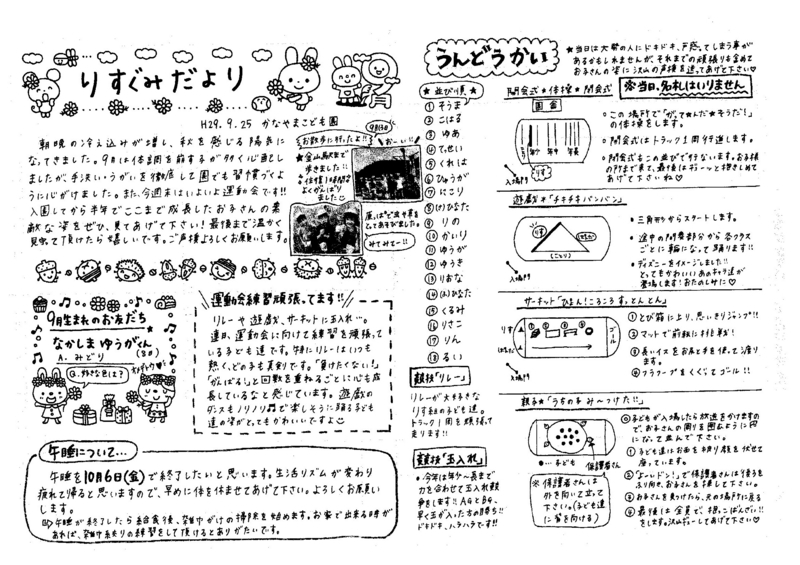 りすぐみだより
H29.9.25 かなやまこども園
朝晩の冷え込みが増し、秋を感じる陽気に
なってきました。9月は体調を崩す子が多く心配し
ましたが、手洗いうがいを徹底して園でも習慣づくよ
うに心がけました。また、今週末はいよいよ運動会です!!
入園してから半年でここまで成長したお子さんの素
敵な姿をぜひ、見てあげて下さい!最後まで温かく
見守って頂けたら嬉しいです。ご声援よろしくお願いします。
9月13日
お散歩に行ったよ!!
★金山駅まで
歩きました!!
お〜い!!
みてみて〜!!
9月生まれのお友だち
なかしま ゆうがくん
(3才)
A. みどり
Q.好きな色は?
運動会練習頑張ってます!!
リレーや遊戯、サーキットに玉入れ…。
連日、運動会に向けて練習を頑張って
いる子ども達です。特にリレーはいつも
熱く、どの子も真剣です。「負けたくない!」
「がんばる!」と回数を重ねるごとに心も成
長しているなと感じています。遊戯の
ダンスもノリノリで楽しそうに踊る子ども
達の姿がとてもかわいいですよ♡
午睡について…
午睡を10月6日(金)で終了したいと思います。生活リズムが変わり
疲れて帰ると思いますので、早めに体を休ませてあげて下さい。よろしくお願い
します。
⇨午睡が終了したら給食後、雑巾がけの掃除を始めます。お家で出来る時が
あれば、雑巾絞りの練習をして頂けるとありがたいです。
うんどうかい
★当日は大勢の人にドキドキ、戸惑ってしまう事が
あるかもしれませんが、それまでの頑張りも含めて
お子さんの姿に沢山の声援を送ってあげて下さい♡
※当日、名札はいりません。
★並び順★
①そうま
②こはる
③ゆあ
④てっせい
⑤くれは
⑥ひゅうが
⑦にこり
⑧(け)ひなた
⑨りの
⑩かいり
⑪ゆうが
⑫ゆうき
⑬りおな
⑭(よ)ひなた
⑮くるみ
⑯りさこ
⑰りん
⑱るい
競技「リレー」
リレーが大好きな
りす組の子ども達。
トラック1周を頑張って
走ります!!
競技「玉入れ」
★今年は年少〜年長まで
力を合わせて玉入れ競
争をします!! AGとBG、
早く玉が入った方の勝ち!!
ドキドキ、ハラハラです!!
開会式★体操★閉会式
園舎
年少 年中 年長
りす
入場門
○この場所で「がってんだそうだ!」
の体操をします。
○開会式はトラック1周行進します。
○閉会式もこの並びで行ないます。お子様
の所まで来て、最後はぎゅーッと抱きしめて
あげて下さいね♡
遊戯★「チキチキバンバン」
りす
はと
(ことり)
入場門
○三角形からスタートします。
○途中の間奏部分から各クラス
ごとに輪になって踊ります!!
★ディズニーをイメージしました!!
とってもかわいいあのキャラ達が
登場します!おたのしみに♡
サーキット「ぴょん!ころころ す。とんとん」
りす
ゴール
入場門
①とび箱に上り、思いきりジャンプ!!
②マットで前転に挑戦!
③長いイスをお尻と手を使って渡り
ます。
④フラフープをくぐってゴール!!
親子「うちの子み〜つけた!!」
●…子ども
保護者さん
入場門
※保護者さんは
外を向いて立って
下さい。(子ども達
に背を向ける)
⓪子どもが入場したら放送をかけますの
で、お子さんの周りを囲むように円
になって並んで下さい。
①子ども達はお面を被り顔を伏せて
座っています。
②「よーいドン!」で保護者さんは後ろを
ふり向き、お子さんを探して下さい。
③お子さんを見つけたら、元の場所に戻る
④最後は全員で、抱っこばんざい!!
をします。沢山ギューしてあげて下さい♡